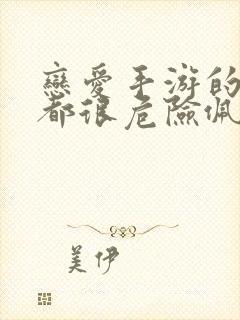 戀愛手游的
都很危險佩
美伊